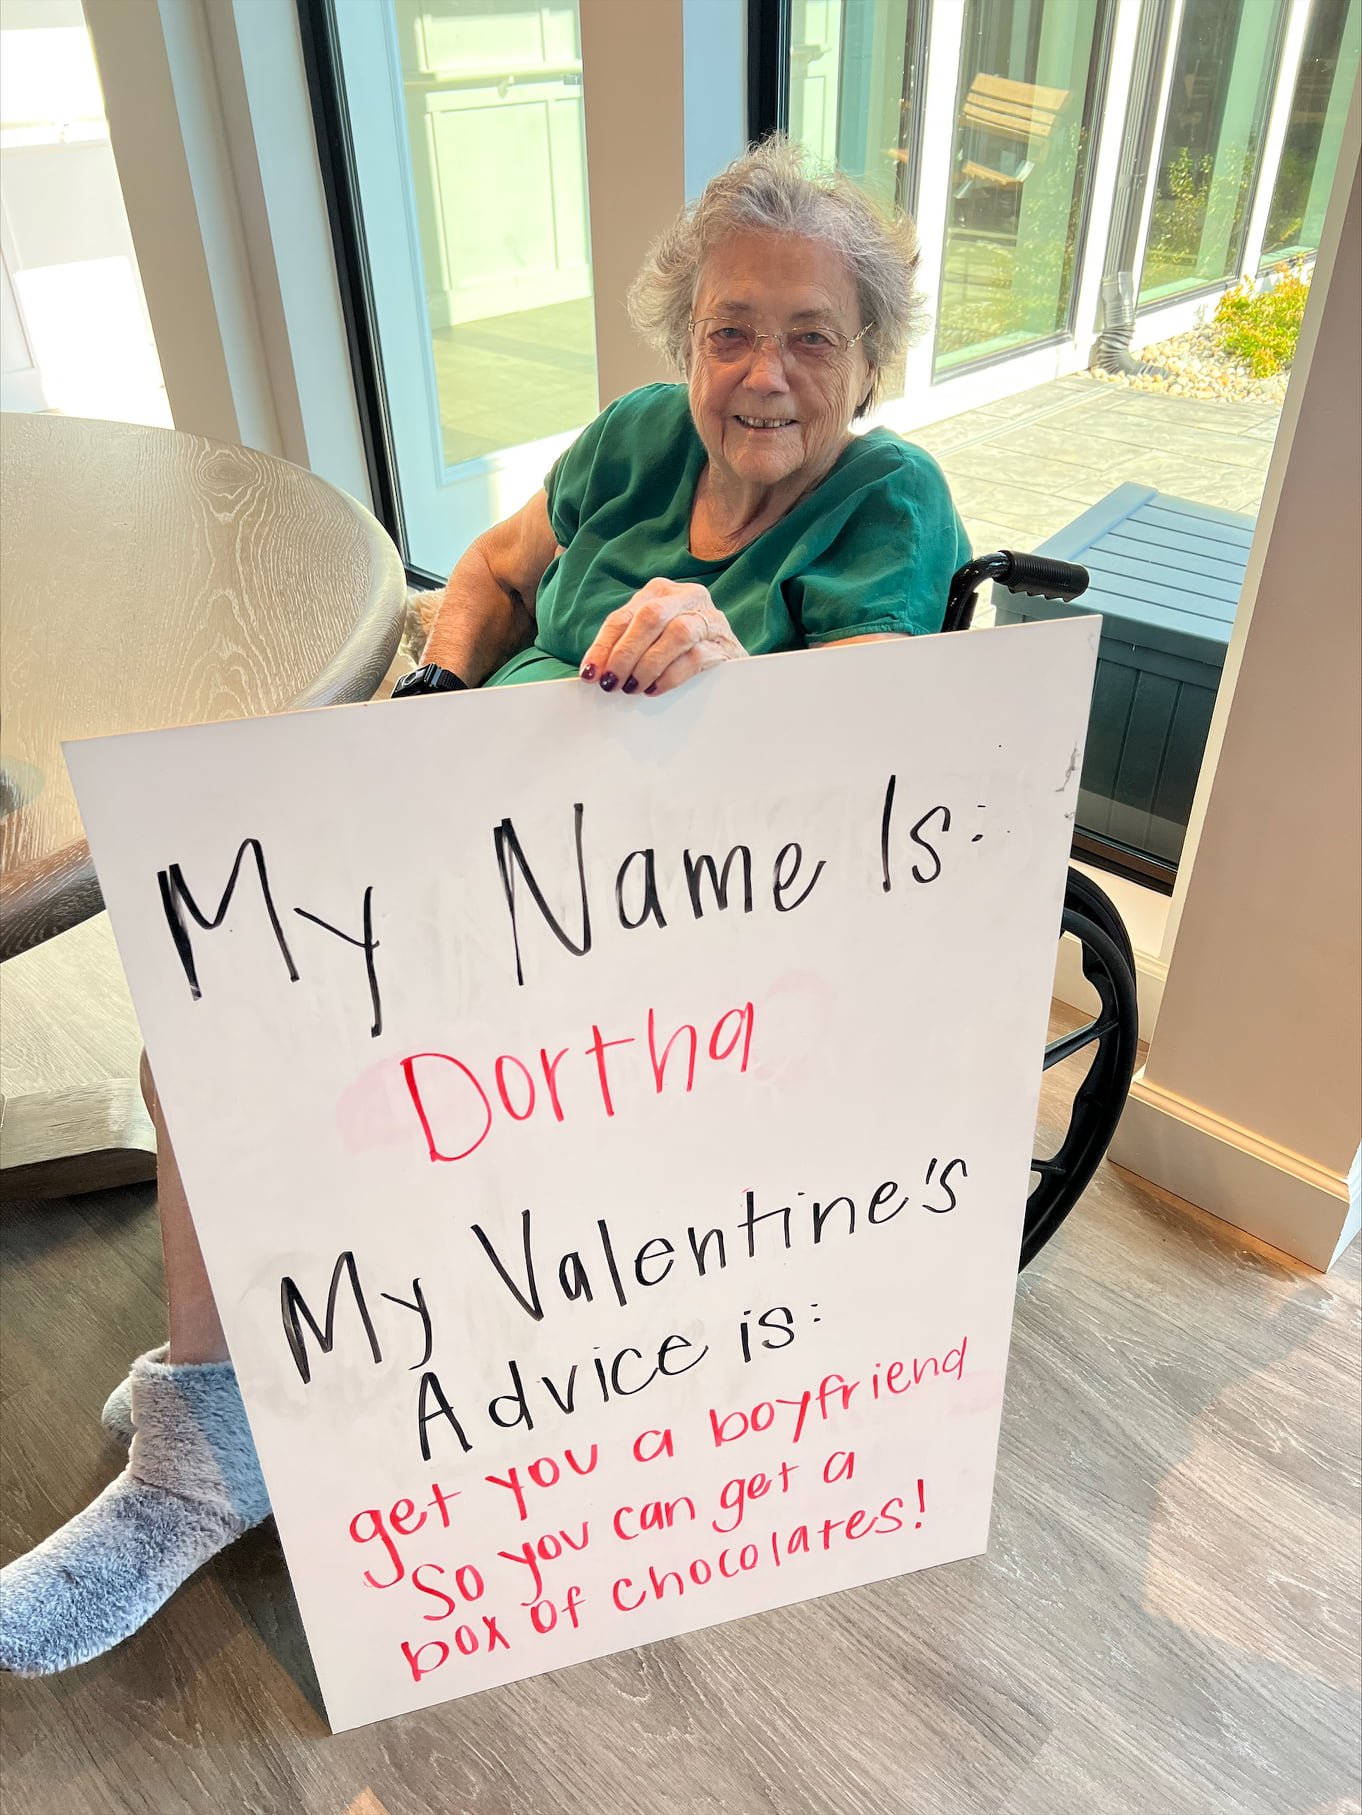 My Name Is:
Dortha
My Valentine's
Advice is:
get you a boyfriend
So you can get a
box of chocolates!